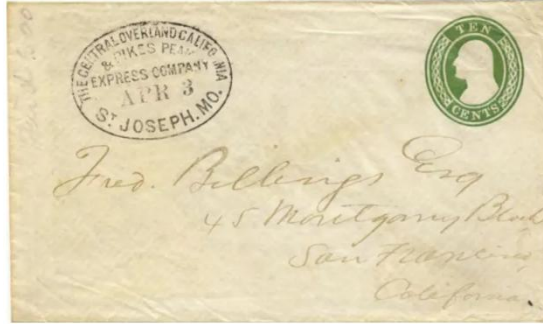 THE CENTRAL OVERLAND CALIFORNIA
& PIKES PEAK
EXPRESS COMPANY
APR 3
ST JOSEPH. MO.
TEN
CENTS
Fred. Billings Esq
45 Montgomry Block
San Francisco
California